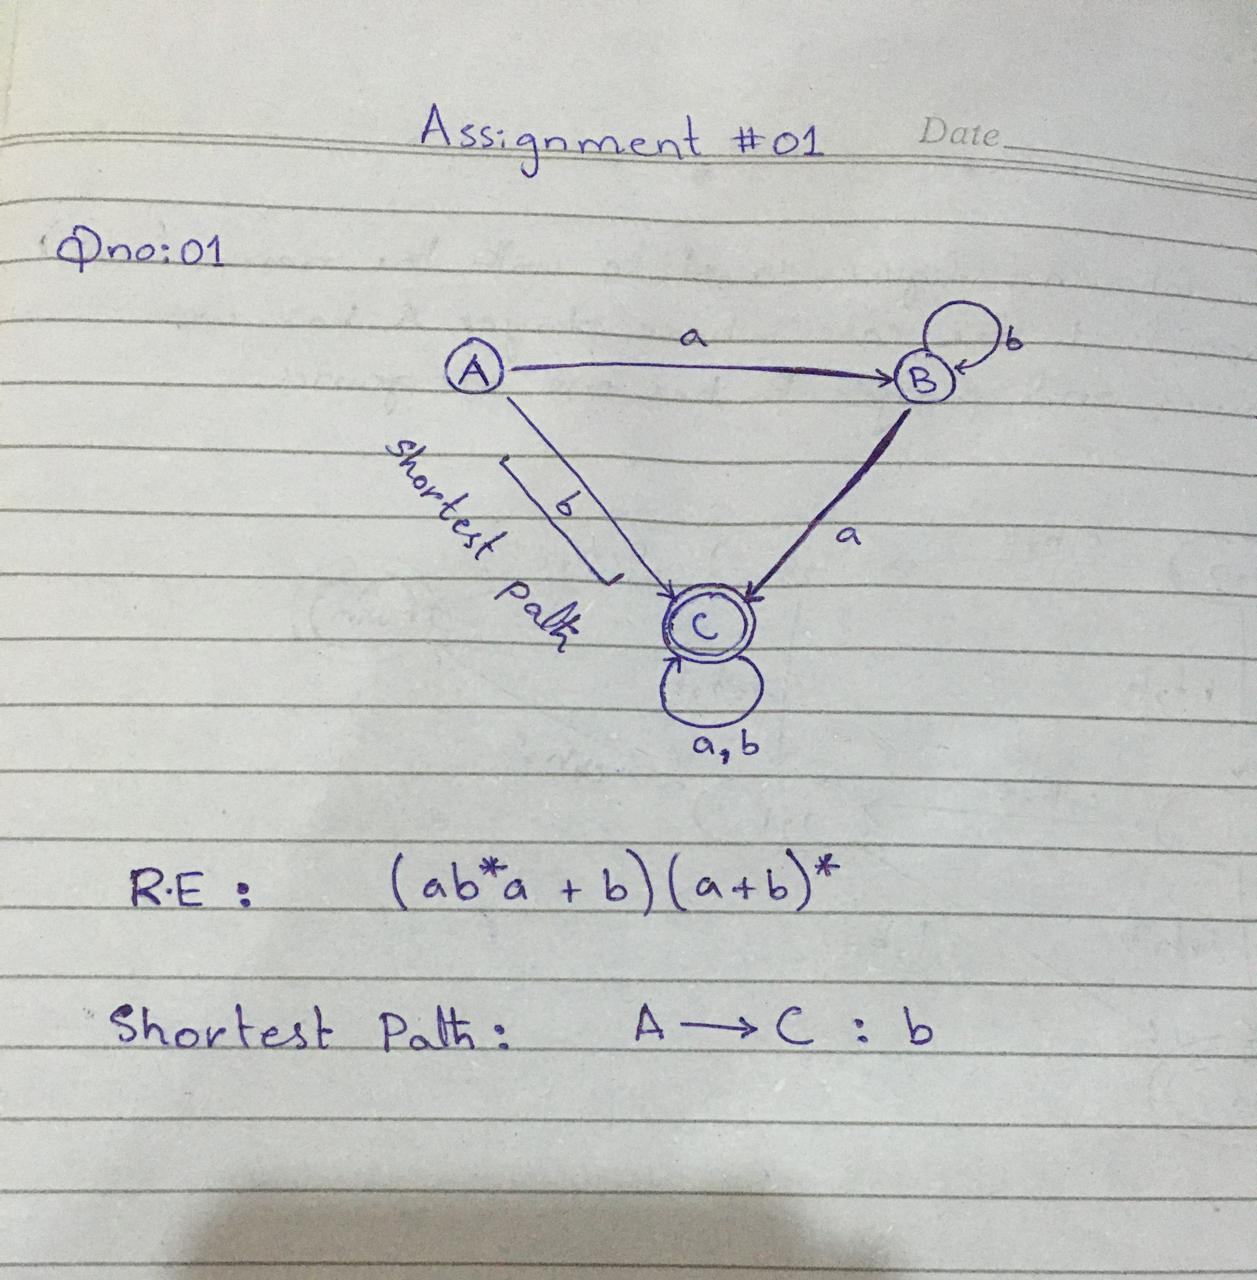 Assignment #01
Date
Qno:01
A
a
B
b
shortest path
b
a
C
a, b
R.E : (ab*a + b)(a+b)*
Shortest Path: A → C : b